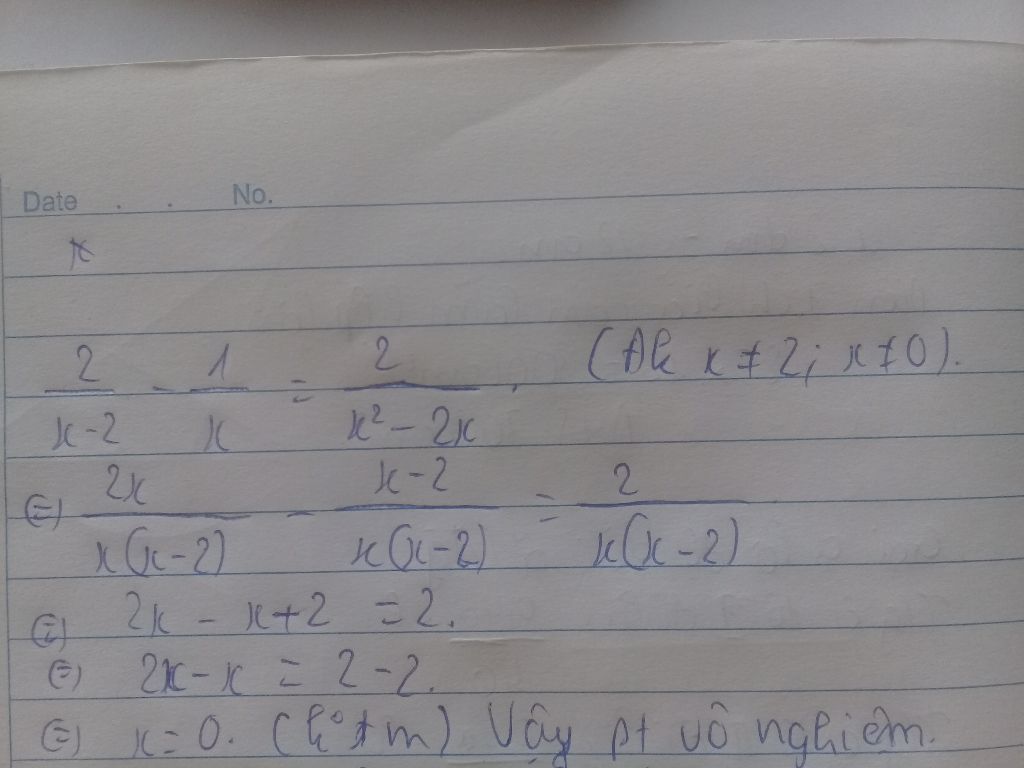 Date . . No.
x
2/(x-2) - 1/x = 2/(x² - 2x) . (Đk x ≠ 2; x ≠ 0).
(=) 2x/(x(x-2)) - (x-2)/(x(x-2)) = 2/(x(x-2))
(=) 2x - x+2 = 2.
(=) 2x - x = 2 - 2.
(=) x = 0. (k° tm) Vậy pt vô nghiệm.